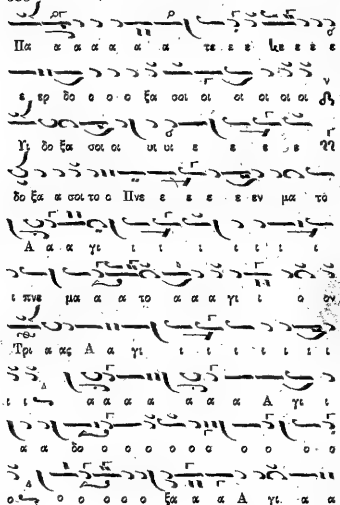 Πα α α α α α τε ε ε κε ε ε ε
ε ερ δο ο ο ο ξα σοι οι οι οι οι οι
Υι δο ξα σοι οι υι υι ε ε ε ε
δο ξα α σοι το ο Πνε ε ε ε ε εν μα το
Α α α γι ι ι ι ι ι ι ι
ι πνε μα α α το α α α γι ι ο ον
Τρι α ας Α α γι ι ι ι ι ι ι ι
ι ι α α α α α α α Α γι ι
α α δο ο ο ο ο ο ο ο ο ο ο
ο ο ο ο ο ο ξα α α Α γι α α